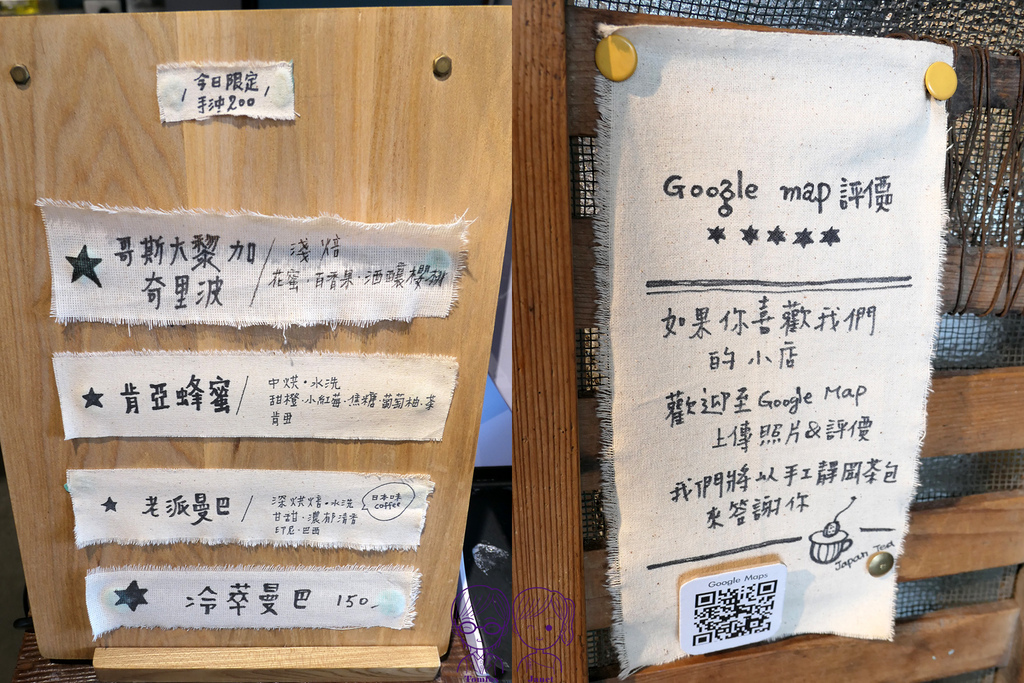 今日限定
手沖200
哥斯大黎加 / 淺焙
奇里波 花蜜·百香果·酒釀櫻桃
肯亞蜂蜜 / 中烘·水洗
甜橙·小紅莓·焦糖·葡萄柚·茶
肯亞
老派曼巴 / 深烘焙·水洗
甘甜·濃郁清香
印尼·巴西
日本味
coffee
冷萃曼巴 150
Google map 評價
★★★★★
如果你喜歡我們
的小店
歡迎至Google Map
上傳照片&評價
我們將以手工靜岡茶包
來答謝你
Japan Tea
Google Maps
Janet